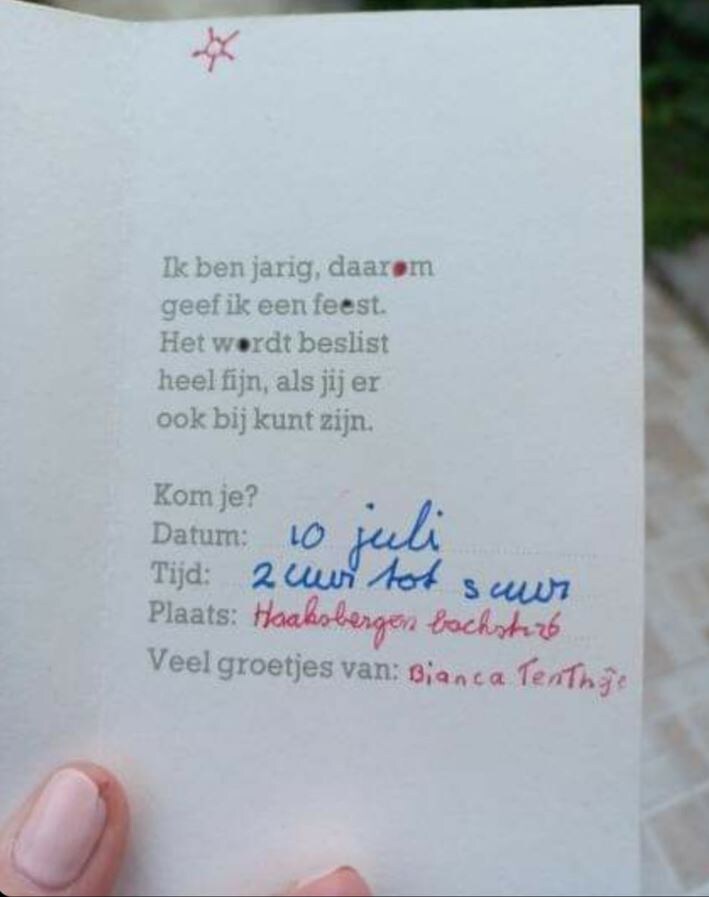 Ik ben jarig, daarom
geef ik een feest.
Het wordt beslist
heel fijn, als jij er
ook bij kunt zijn.
Kom je?
Datum: 10 juli
Tijd: 2 uur tot 5 uur
Plaats: Haaksbergen
Veel groetjes van: Bianca